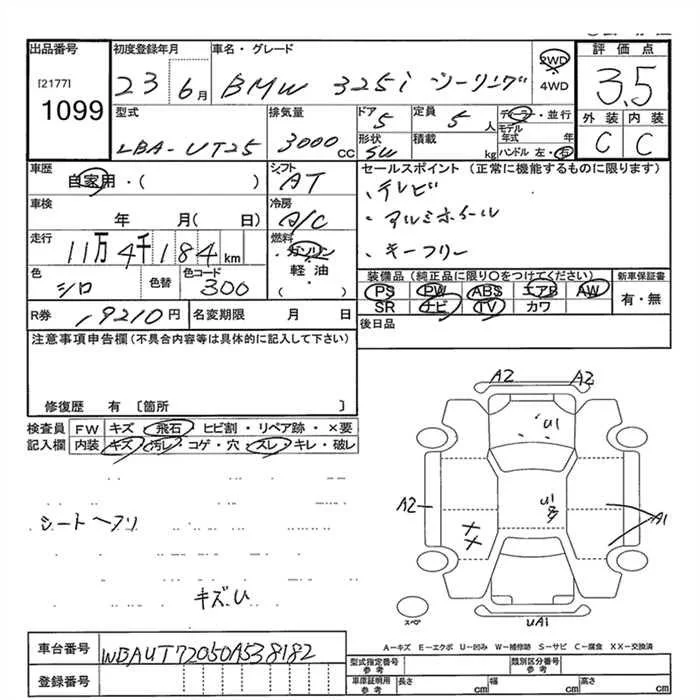 出品番号 初度登録年月 車名・グレード 2WD 評価点
[2177] 23 6月 BMW 325i ツーリング 4WD 3.5
1099
型式 排気量 ドア 5 定員 5人 ディーラー・並行 外装 内装
LBA-UT25 3000CC 形状 SW 積載 kg モデル年式 年 C C
ハンドル 左・右
車歴 シフト セールスポイント (正常に機能するものに限ります)
自家用・( ) AT ・テレビ
車検 冷房 ・アルミホイール
年 月( 日) A/C ・キーフリー
走行 燃料
11万4千184km ガソリン 装備品 (純正品に限り○をつけてください) 新車保証書
色 色替 色コード 軽油 PS PW ABS エアB AW 有・無
シロ 300 ・( ) SR ナビ TV カワ
R券 19210円 名変期限 月 日 後日品
注意事項申告欄 (不具合内容等は具体的に記入して下さい)
修復歴 有 〔箇所 〕
検査員 FW キズ・飛石・ヒビ割・リペア跡・×要
記入欄 内装 キズ・汚レ・コゲ・穴・スレ・キレ・破レ
シートヘフリ
キズ.U
A2 A2
U1
A2 U1 A1
UA1
スペア
A-キズ E-エクボ U-凹み W-補修跡 S-サビ C-腐食 XX-交換済
車台番号 WBAUT72050A538182 型式指定番号 参考 類別区分番号 参考
登録番号 車庫証明用 参考 長さ cm 幅 cm 高さ cm